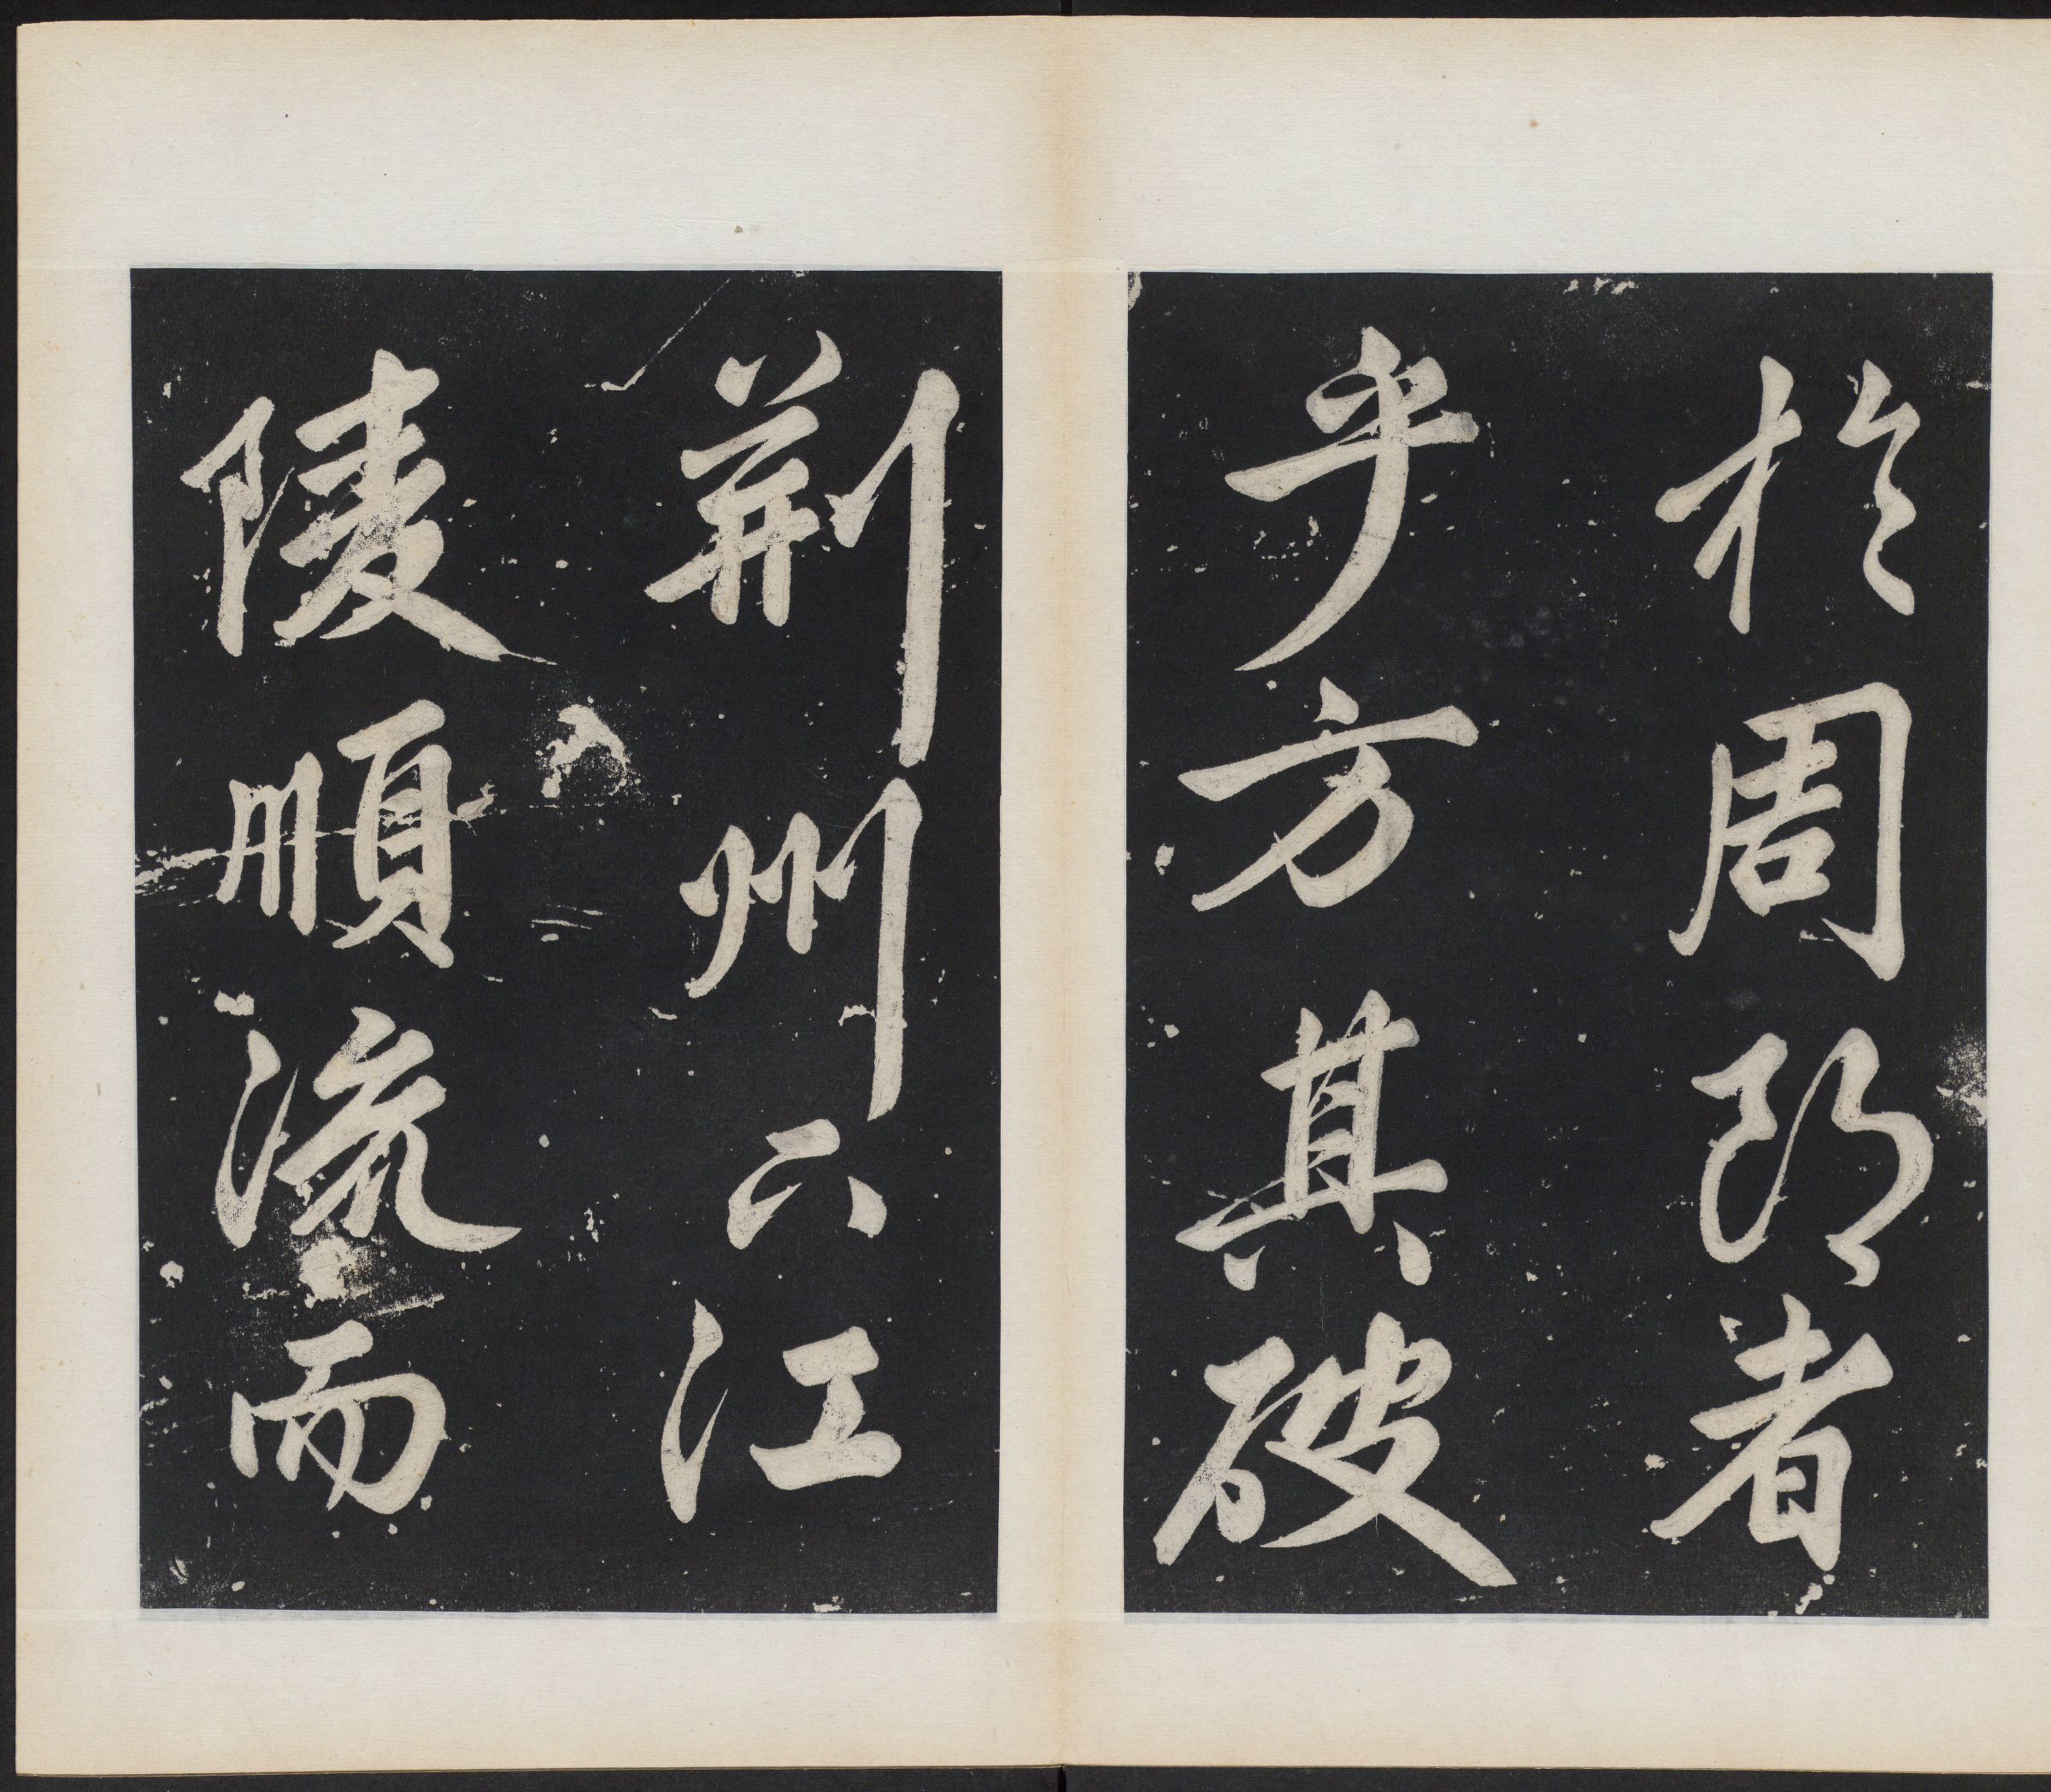 於周郎者
乎方其破
荆州下江
陵順流而